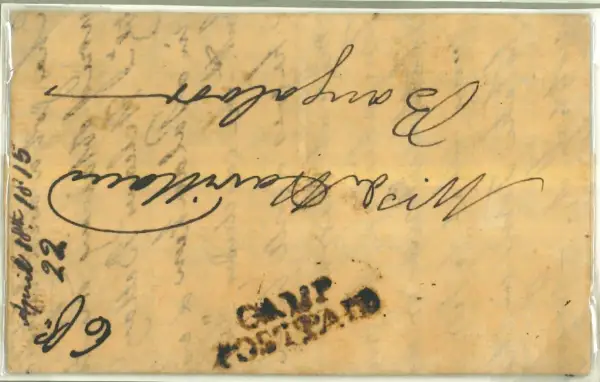 Mrs. de Havilland
Bangalore
April 10th 1815
22
6
CAMP
POSTPAID